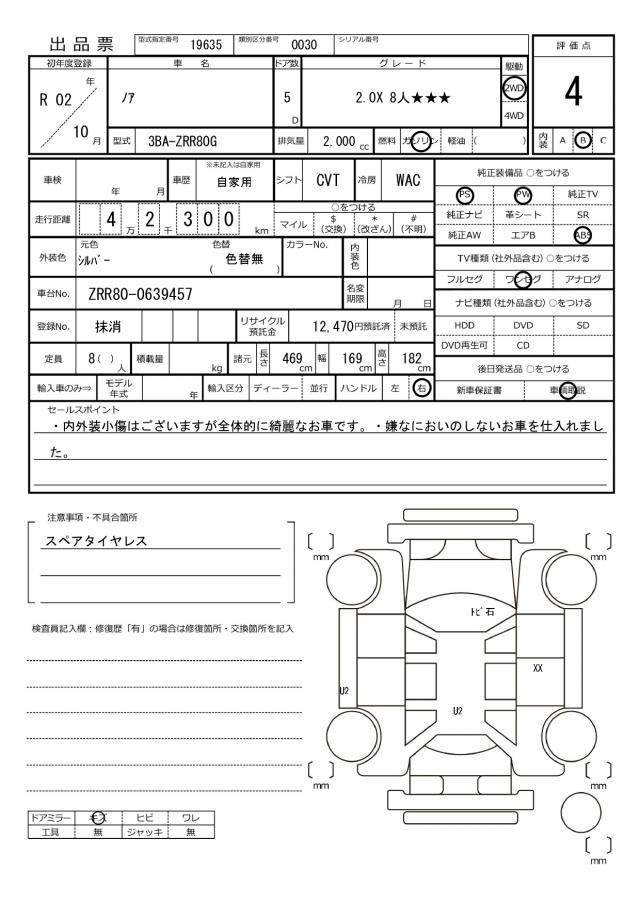 出品票 型式指定番号 19635 類別区分番号 0030 シリアル番号
評価点
初年度登録 車名 ドア数 グレード 駆動
R 02 年 ノア 5 D 2.0X 8人★★★ 2WD 4
4WD
10 月 型式 3BA-ZRR80G 排気量 2,000 cc 燃料 ガソリン 軽油 ( ) 内装 A B C
車検 年 月 車歴 ※未記入は自家用 自家用 シフト CVT 冷房 WAC
純正装備品 ○をつける
PS PW 純正TV
走行距離 4 万 2 千 3 0 0 km ○をつける
マイル $ (交換) * (改ざん) # (不明)
純正ナビ 革シート SR
純正AW エアB ABS
外装色 元色 シルバー 色替 ( 色替無 ) カラーNo. 内装色
TV種類 (社外品含む) ○をつける
フルセグ ワンセグ アナログ
車台No. ZRR80-0639457 名変期限 月 日
ナビ種類 (社外品含む) ○をつける
登録No. 抹消 リサイクル預託金 12,470円預託済 未預託
HDD DVD SD
DVD再生可 CD
定員 8( ) 人 積載量 kg 諸元 長さ 469 cm 幅 169 cm 高さ 182 cm
後日発送品 ○をつける
輸入車のみ⇒ モデル年式 年 輸入区分 ディーラー 並行 ハンドル 左 右
新車保証書 車輌取説
セールスポイント
・内外装小傷はございますが全体的に綺麗なお車です。・嫌なにおいのしないお車を仕入れまし
た。
注意事項・不具合箇所
スペアタイヤレス
mm mm
トビ石
検査員記入欄：修復歴「有」の場合は修復箇所・交換箇所を記入
XX
U2
U2
mm mm
ドアミラー キズ ヒビ ワレ
工具 無 ジャッキ 無
mm